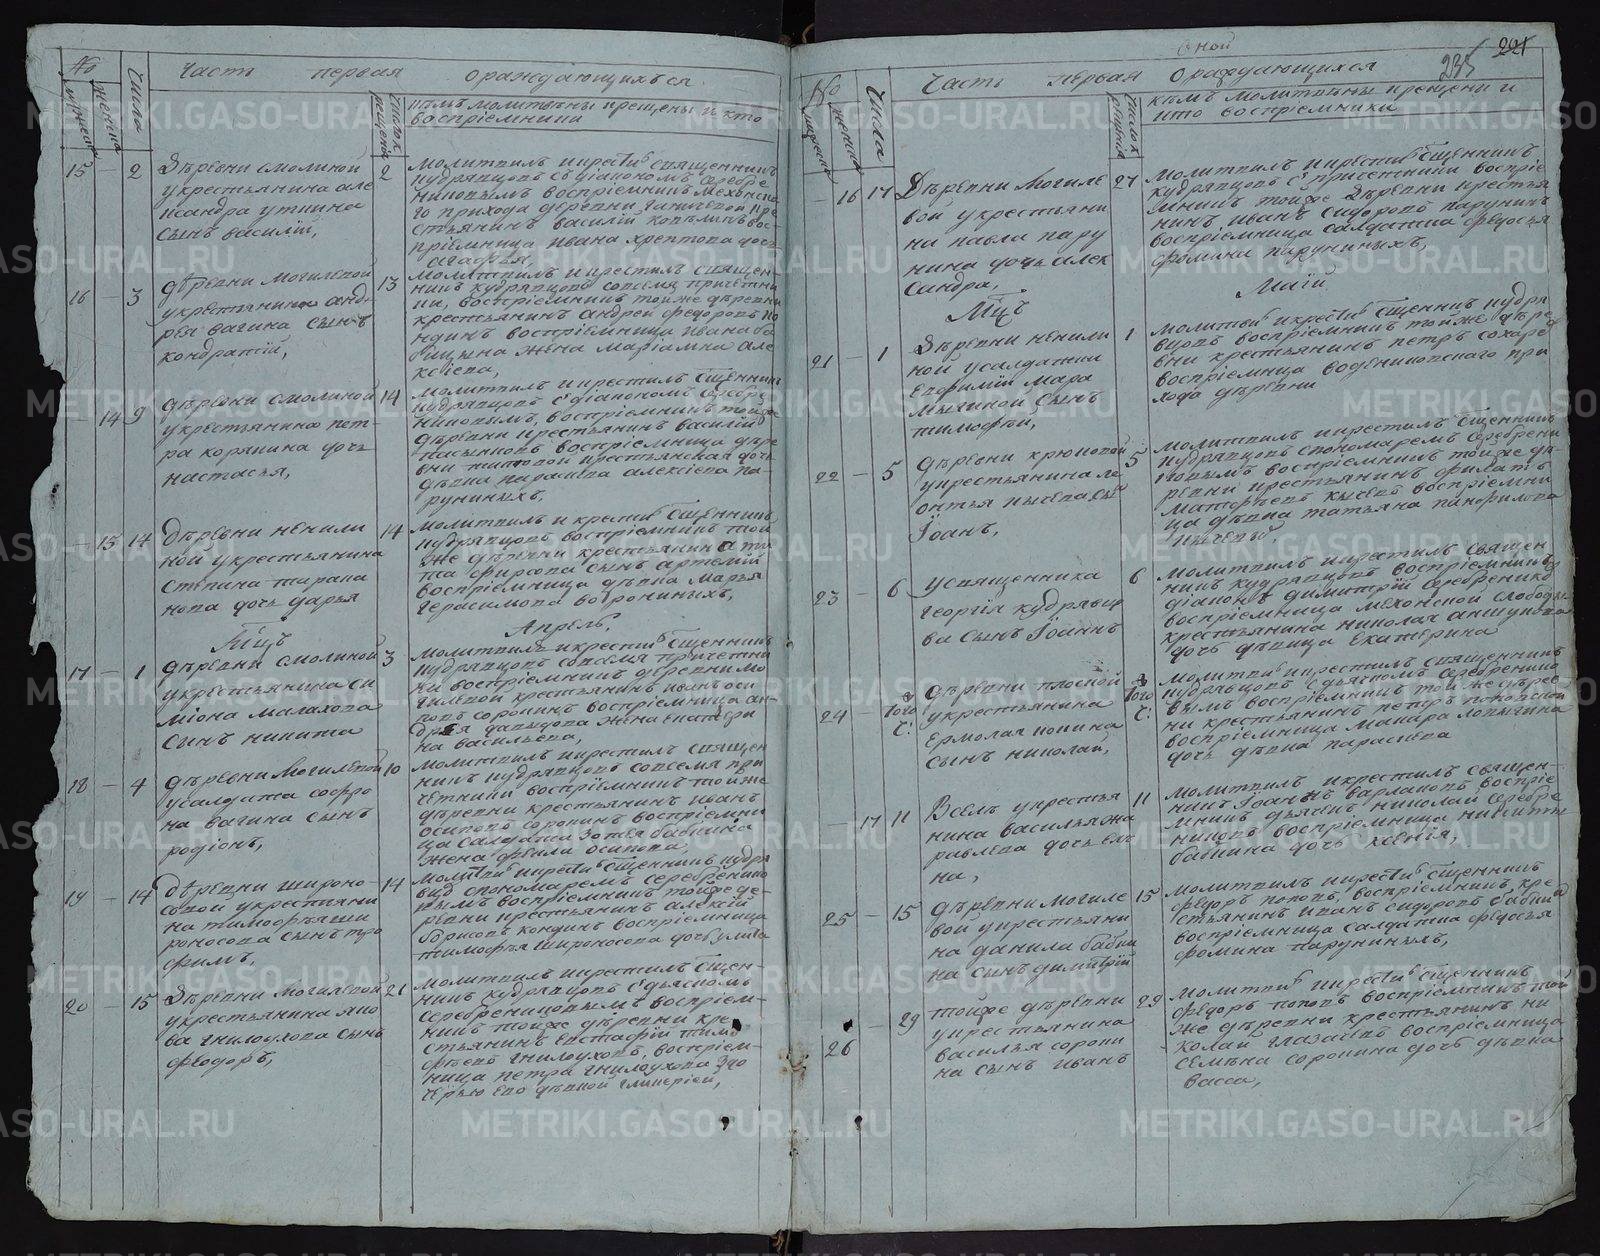 №
мужеска
женска
Числа
Часть первая о раждающихся
Число крещенія
кѣмъ молитвены крещены и кто
воспріемники
15 — 2
Деревни Смолиной
у крестьянина Але
ксандра Уткина
сынъ Василій,
2
молитвилъ и крестилъ священникъ
Кудрявцовъ съ діакономъ Серебре
никовымъ воспріемникъ Мехонска
го прихода деревни
стьянинъ Василій воc
пріемница Ивана дочь
Агафья,
16 — 3
Деревни Могилевой
у крестьянина Анд
рея Вагина сынъ
Кондратій,
13
молитвилъ и крестилъ священ
никъ Кудрявцовъ со всемя причетни
ки, воспріемникъ той же деревни
крестьянинъ Андрей Федоровъ Ко
ндинъ воспріемница Ивана Ба
бицына жена Маріамна Але
ксіева,
— 14 9
Деревни Смолиной
у крестьянина Пет
ра Корякина дочь
Настасья,
14
молитвилъ и крестилъ сщенникъ
Кудрявцовъ съ діакономъ Серебре
никовымъ, воспріемникъ той же
деревни крестьянинъ Василій
воспріемница дере
вни крестьянская дочь
девка Парасева Алексіева Па
руниныхъ,
— 15 14
Деревни Ненили
ной у крестьянина
Степана Тарака
нова дочь Дарья
14
молитвилъ и крестилъ сщенникъ
Кудрявцовъ воспріемникъ той
же деревни крестьянина
Фирсова сынъ Артемій
воспріемница девка Марья
Герасимова Ворониныхъ,
Мцъ Апрель,
17 — 1
Деревни Смолиной
у крестьянина Си
міона Малахова
сынъ Никита
3
молитвилъ и крестилъ сщенникъ
Кудрявцовъ со всемя причетни
ки воспріемникъ деревни Мо
гилевой крестьянинъ Иванъ Оси
повъ Сорокинъ воспріемница Ан
дрея Давыдова жена Екатери
на Васильева,
18 — 4
Деревни Могилевой
у салдата Софро
на Вагина сынъ
Родіонъ,
10
молитвилъ и крестилъ священ
никъ Кудрявцовъ со всемя при
четники воспріемникъ той же
деревни крестьянинъ Иванъ
Осиповъ Сорокинъ воспріемни
ца салдата Зотея Бабкина
жена Фекла Осипова,
19 — 14
Деревни Широно
совой у крестьяни
на Тимофея Ши
роносова сынъ Тро
фимъ,
14
молитвилъ и крестилъ сщенникъ Кудря
вцовъ с пономаремъ Серебренико
вымъ воспріемникъ той же де
ревни крестьянинъ Алексій
Борисовъ Кондинъ воспріемница
Тимофея Широносова дочь Улита
20 — 15
Деревни Могилевой
у крестьянина Яко
ва Гнилоухова сынъ
Федоръ,
21
молитвилъ и крестилъ сщен
никъ Кудрявцовъ с дьякомъ
Серебрениковымъ воспріем
никъ той же деревни кре
стьянинъ Евстафій Тимо
феевъ Гнилоуховъ, воспріем
ница Петра Гнилоухова з до
черью ево девкой Гликеріей,
оной
235 221
№
мужеска
женска
Числа
Часть первая о раждающихся
Число крещенія
кѣмъ молитвены крещены и
кто воспріемники
— 16 17
Деревни Могиле
вой у крестьяни
на Павла Пару
нина дочь Алек
сандра,
27
молитвилъ и крестилъ сщенникъ
Кудрявцовъ с причетники воспріе
мникъ той же деревни крестья
нинъ Иванъ Сидоровъ Парунинъ
воспріемница салдатка Федосья
Фомина Паруниныхъ,
Мцъ Маій
21 — 1
Деревни Ненили
ной у салдатки
Евфиміи Мара
мыгиной сынъ
Тимофей,
1
молитвилъ и крестилъ сщенникъ Кудря
вцовъ воспріемникъ той же дере
вни крестьянинъ Петръ
воспріемница Воденниковскаго при
хода деревни
22 — 5
Деревни Крюковой
у крестьянина Ле
онтья Кычева сынъ
Іоанъ,
5
молитвилъ и крестилъ сщенникъ
Кудрявцовъ с пономаремъ Серебрени
ковымъ воспріемникъ той же де
ревни крестьянинъ Филатъ
Матфеевъ Кычевъ воспріемни
ца девка Татьяна Панфилова
Кычевы,
23 — 6
У священника
Георгія Кудрявце
ва сынъ Іоаннъ
6
молитвилъ и крестилъ священ
никъ Кудрявцовъ воспріемникъ
діаконъ Димитрій Серебрениковъ
воспріемница Мехонской слободы
крестьянина Николая
дочь девица Екатерина
24 — того ч:
Деревни Плоской
у крестьянина
Ермолая Попкина
сынъ Николай,
того ч:
молитвилъ и крестилъ священникъ
Кудрявцовъ с дьякомъ Серебренико
вымъ воспріемникъ той же дерев
ни крестьянинъ Петръ
воспріемница Макара Ловыгина
дочь девка Параскева
— 17 11
В селе у крестья
нина Василья Жу
равлева дочь Еле
на,
11
молитвилъ и крестилъ священ
никъ Іоаннъ Варлаковъ воспріе
мникъ дьячекъ Николай Серебре
никовъ воспріемница Никиты
Бабкина дочь Ксенія,
25 — 15
Деревни Могиле
вой у крестьяни
на Данила Бабки
на сынъ Димитрій
15
молитвилъ и крестилъ сщенникъ
Федоръ Поповъ, воспріемникъ кре
стьянинъ Иванъ Сидоровъ Бабкинъ
воспріемница салдатка Федосья
Фомина Паруниныхъ,
26 — 29
той же деревни
у крестьянина
Василья Сороки
на сынъ Иванъ
29
молитвилъ и крестилъ сщенникъ
Федоръ Поповъ воспріемникъ той
же деревни крестьянинъ Ни
колай Глазачевъ воспріемница
Семена Сорокина дочь девка
Васса,
METRIKI.GASO-URAL.RU